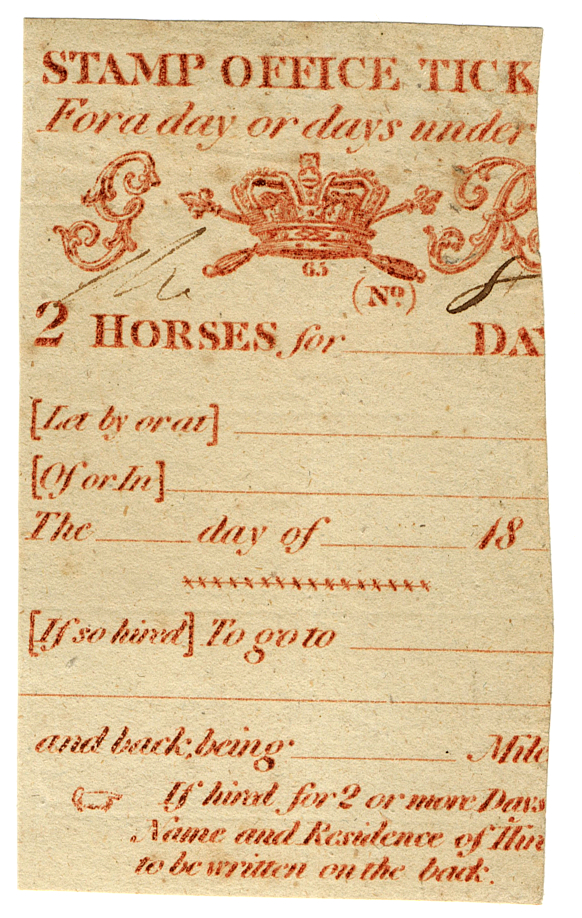 STAMP OFFICE TICK
For a day or days under
G R
65
(No) 8
2 HORSES for DAY
[Let by or at]
[Of or In]
The day of 18
[If so hired] To go to
and back, being Mile
If hired for 2 or more Days
Name and Residence of Hir
to be written on the back.